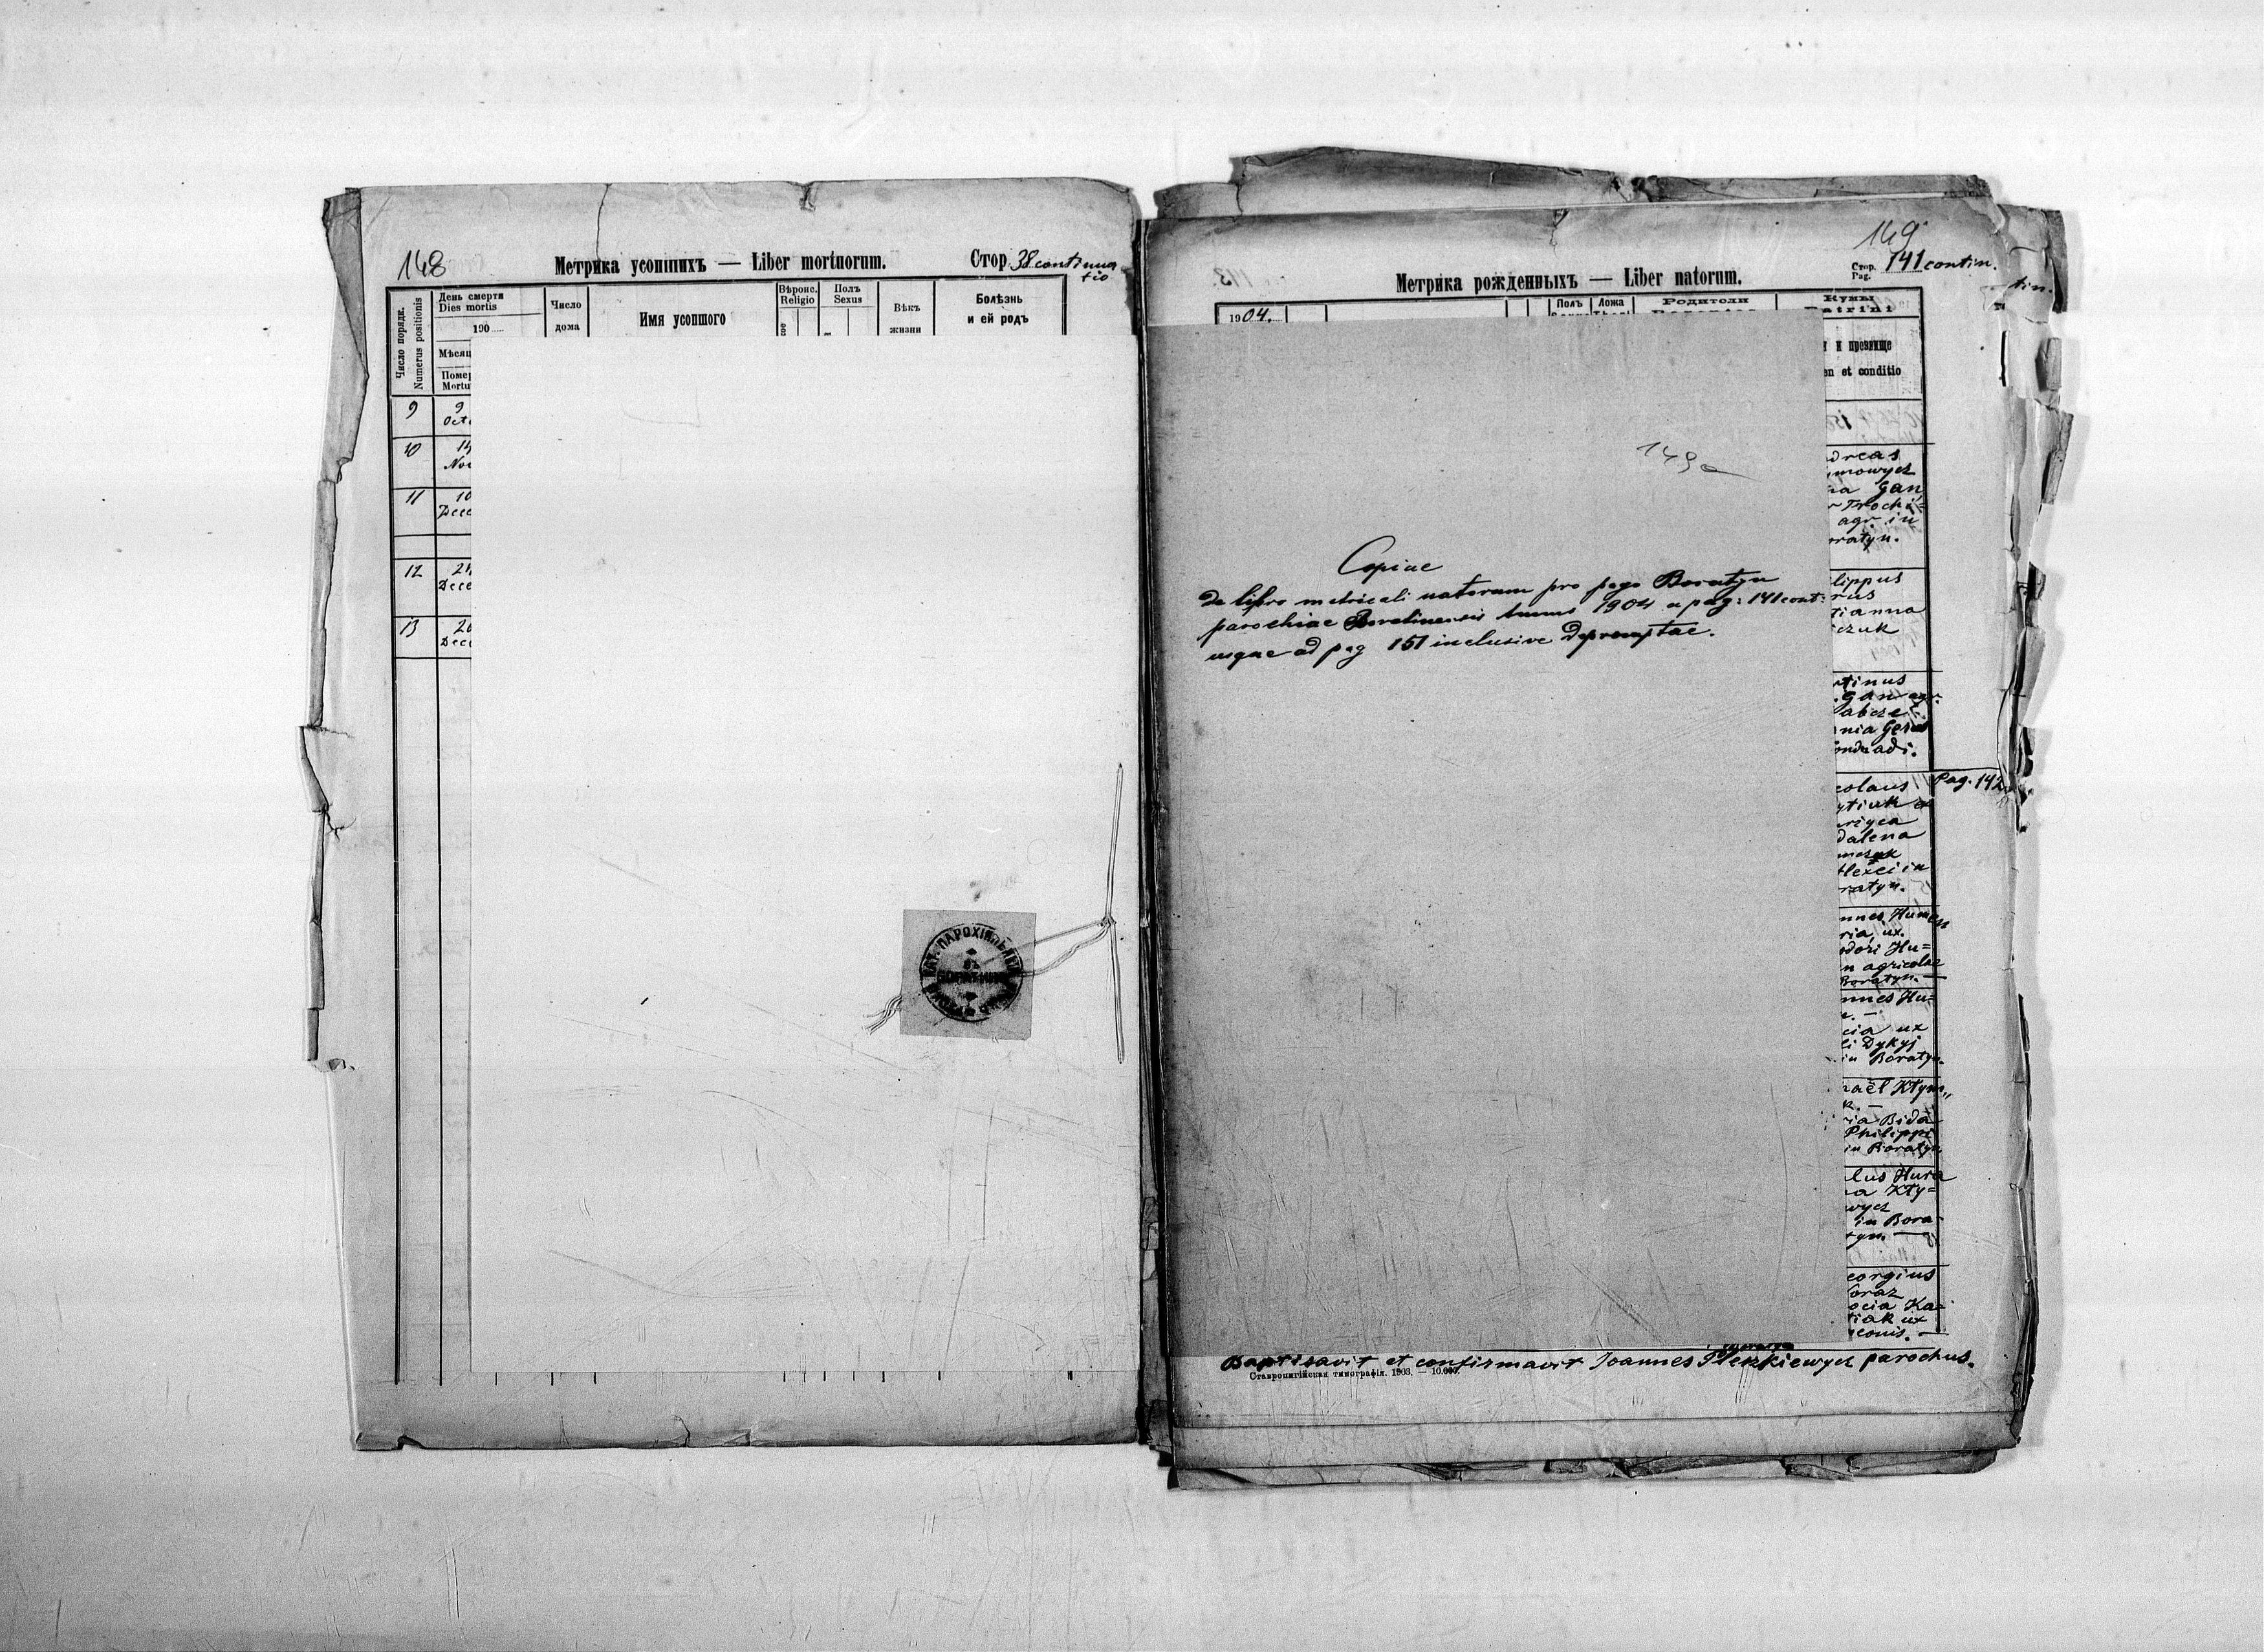 148
Метрика усопшихъ — Liber mortuorum.
Стор. 38 continua
tio
Число порядк.
Numerus positionis
День смерти
Dies mortis
190
Число
дома
Имя усопшого
Вѣроис.
Religio
Полъ
Sexus
Вѣкъ
жизни
Болѣзнь
и ей родъ
Мѣсяц
Помер
Mortu
9 9
Oct
10 14
Nov
11 10
Dece
12 24
Dece
13 26
Dece
149
Метрика рожденныхъ — Liber natorum.
Стор.
Pag. 141 contin.
tin.
1904.
Полъ
Ложа
Родители
Кумы
Patrini
и прозвище
en et conditio
149a
Copiae
de libro metricali natorum pro pago Boratyn
parochiae Boratinensis annus 1904 a pag: 141 cont:
usque ad pag 151 inclusive depromptae.
dreas
mowycz
na Gan
r Trochi=
agr. in
oratyn.
lippus
rus
tianna
czuk
rtinus
Gan agr.
abcze
nia Geras
ondradi.
Pag. 142
colaus
ytiuk et
arijca
dalena
mczuk
Alexei in
ratyn.
nnes Humen
ria, ux.
odori Hu=
n agricolae
Boratyn. —
nnes Hu=
n. —
cia ux
li Dykyj
in Boratyn.
haël Kłym„
k. —
ria Bida
Philippi
in Boratyn
lus Hura
na Kły=
wycz
in Bora-
tyn. —
eorgius
oraz
ocia Ka=
tiak ux
conis. —
Baptisavit et confirmavit Joannes Pleszkiewycz parochus.
Ставропигійская типографія. 1903. — 10.000.